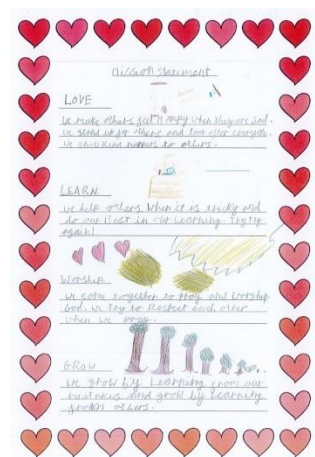 mission statement
LOVE
we make others feel happy when they are sad.
we stand up for others and look after everyone.
we show kind manners to others.
LEARN
we help others when it is tricky and
do our best in our learning. Try try
again!
WORSHIP
we come together to pray and worship
God. we try to Respect each other
when we pray.
GROW
we grow by learning from our
mistakes and grow by learning
from others.